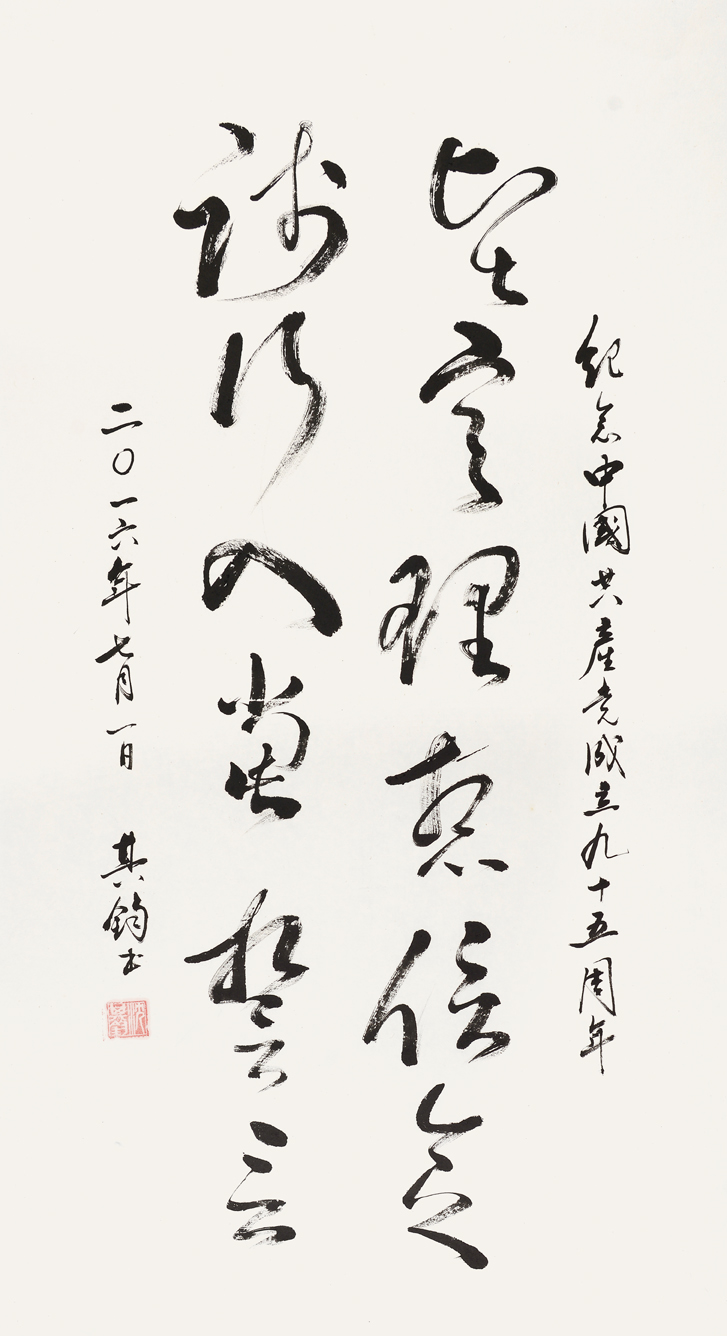 紀念中國共產党成立九十五周年
坚定理想信念
踐行入党誓言
二〇一六年七月一日 其鈞书